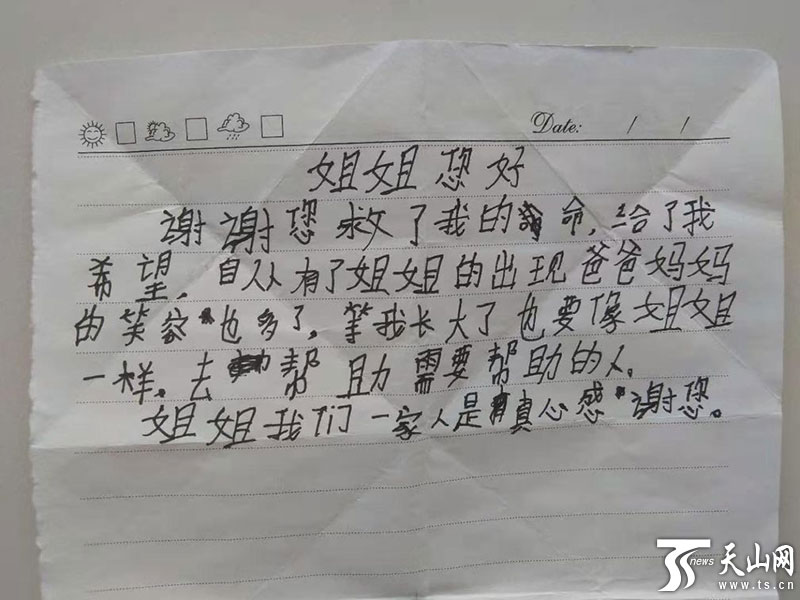 Date: / /
姐姐您好
谢谢您救了我的命,给了我
希望,自从有了姐姐的出现爸爸妈妈
的笑也多了。等我长大了也要像姐姐
一样。去帮助需要帮助的人。
姐姐我们一家人是真心感谢您。
TS news 天山网
www.ts.cn